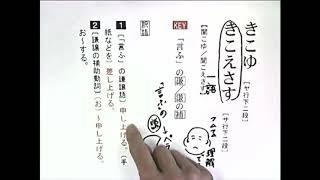 きこゆ [ヤ行下二段]
きこえさす [サ行下二段]
【聞こゆ/聞こえさす】
一語
KEY 「言ふ」の謙/謙の補
訳語
1 [「言ふ」の謙譲語] 申し上げる。(手
紙などを)差し上げる。
2 [謙譲の補助動詞](お)〜申し上げる。
お〜する。
フムフム
理解
「言ふ」の